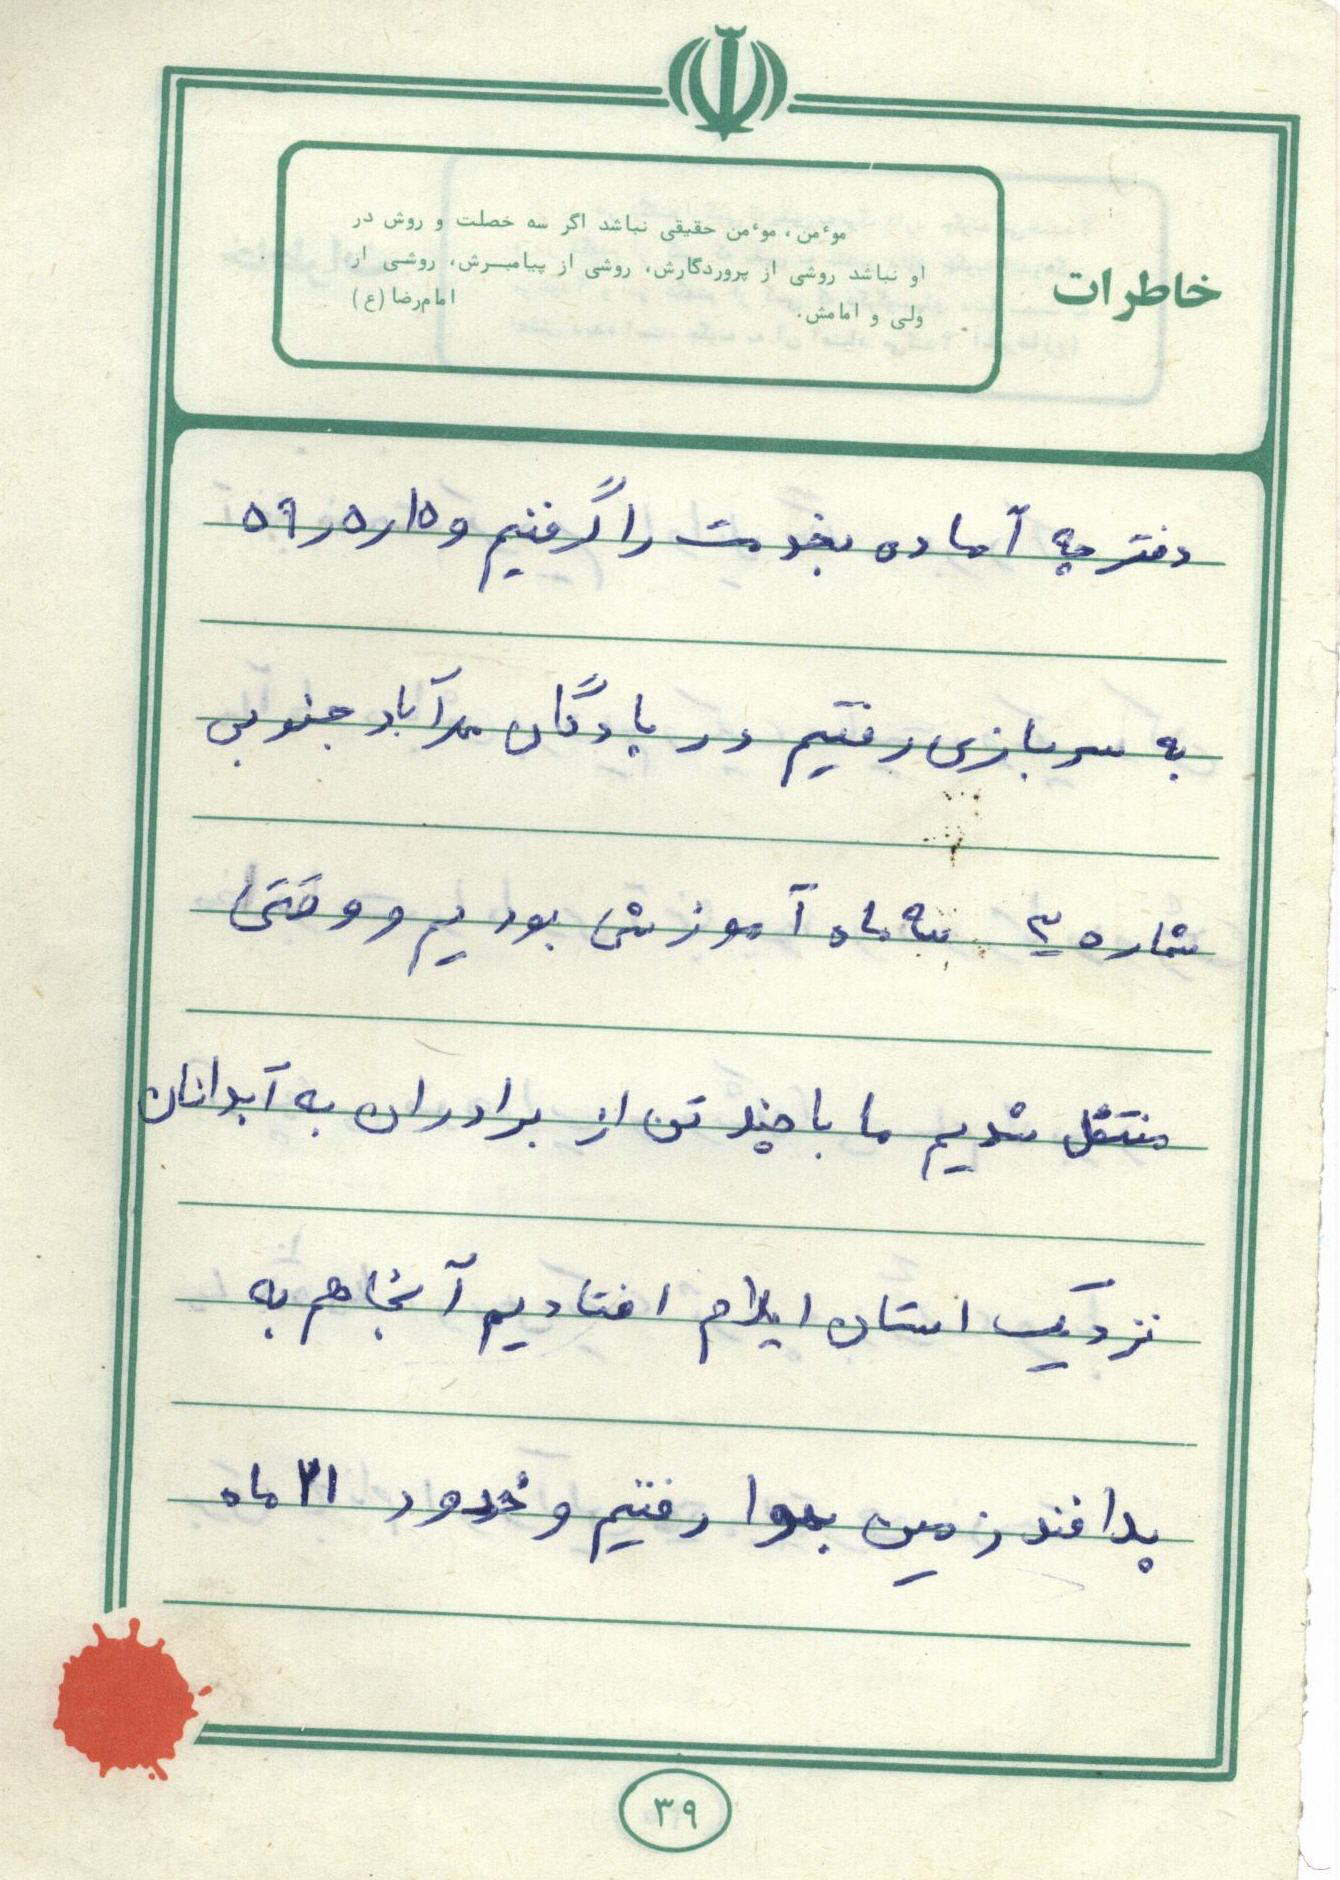 خاطرات
موٴمن، موٴمن حقیقی نباشد اگر سه خصلت و روش در
او نباشد روشی از پروردگارش، روشی از پیامبرش، روشی از
ولی و امامش. امام‌رضا (ع)
دفترچه آماده بخدمت را گرفتیم و ۱۵ر۵ر۵۹
به سربازی رفتیم در پادگان مهرآباد جنوبی
شماره ۳ سه ماه آموزشی بودیم و وقتی
منتقل شدیم ما با چند تن از برادران به آبدانان
نزدیک استان ایلام افتادیم آنجا هم به
پدافند زمین بهوا رفتیم و حدود ۲۱ ماه
۳۹